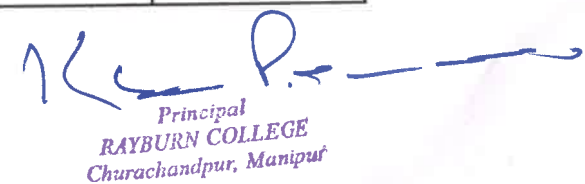 Principal
RAYBURN COLLEGE
Churachandpur, Manipur